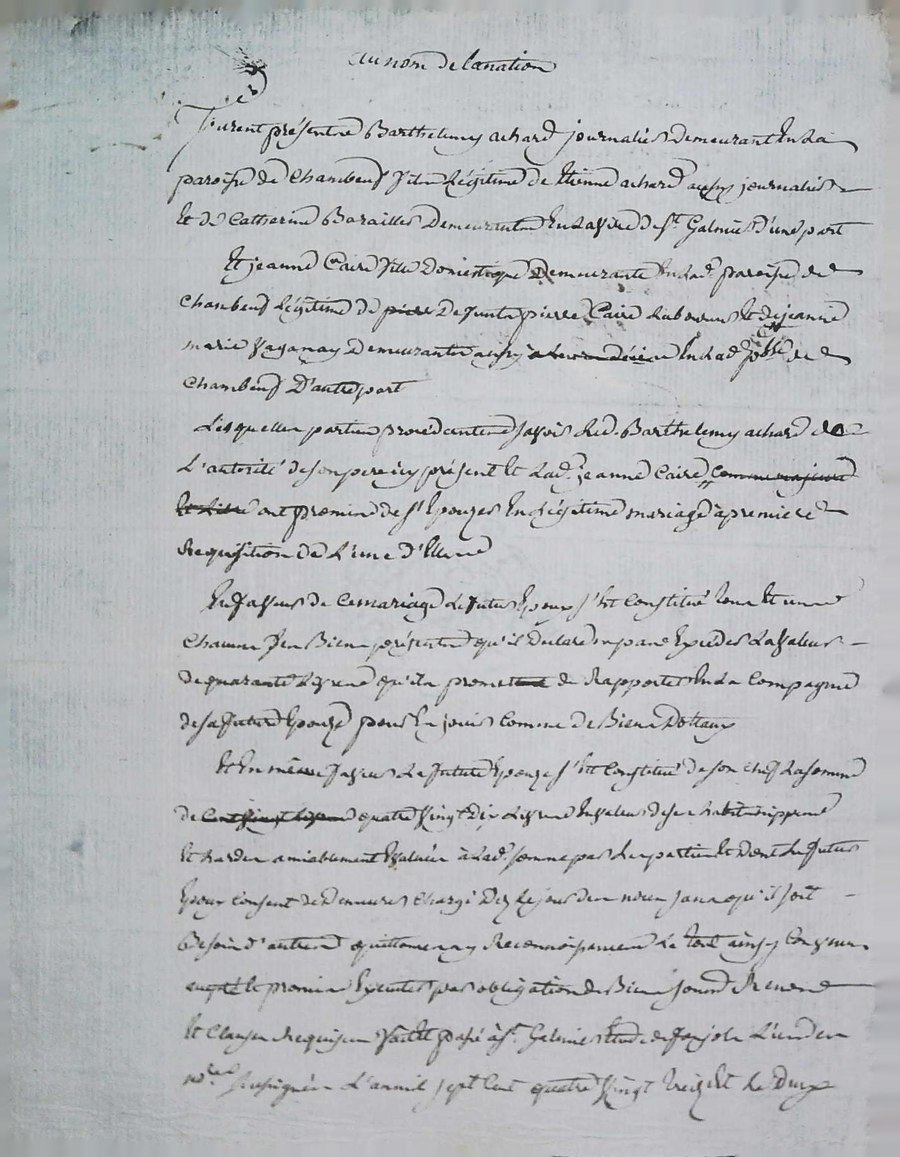 au nom de la nation
Furent présents Barthelemy achard journalier Demeurant En La
paroisse de Chambeuf fils Légitime de Etienne achard aussy journalier
Et de Catherine Barailler Demeurant En La ville de St Galmier d'une part
Et jeanne Caire fille Domestique Demeurante En Lad. paroisse de
Chambeuf Légitime de pierre Defunt pierre Caire Laboureur Et de jeanne
marie Vaganay Demeurante aussy En Lad. psse de
Chambeuf D'autre part
Lesquelles parties procédantes savoir Led. Barthelemy achard de
L'autorité de son pere icy présent Et Lad. jeanne Caire Comme majeure
Et Libre ont promis de s'Epouzer En Légitime mariage à premiere
Requisition de L'une d'Elles
En faveur de Ce mariage Le futur Epoux s'Est Constitué tous Et uns
Chacuns ses Biens présents qu'il Declare ne pas Exceder La valeur
de quarante Livres qu'il promet de Rapporter En La Compagnie
de sa future Epouze pour En jouir Comme de Biens Dottaux
Et En même faveur La future Epouze s'Est Constitué de son chef La somme
de quatre Vingt Dix Livres En valeur de ses habits nipes
Et hardes amiablement Evalués à Lad. somme par Les parties Et Dont Le futur
Epoux Consent de Demeurer Chargé Dez Le jour des noces sans qu'il soit
Besoin d'autres quittances ny Reconnoissances Le tout ainsy Convenu
accepté Et promis Executer par obligation de Biens
Et Clauses Requises fait Et passé à St. Galmier Etude de fonjols L'un des
nres soussignés L'an mil sept Cent quatre Vingt treize Et Le Dix